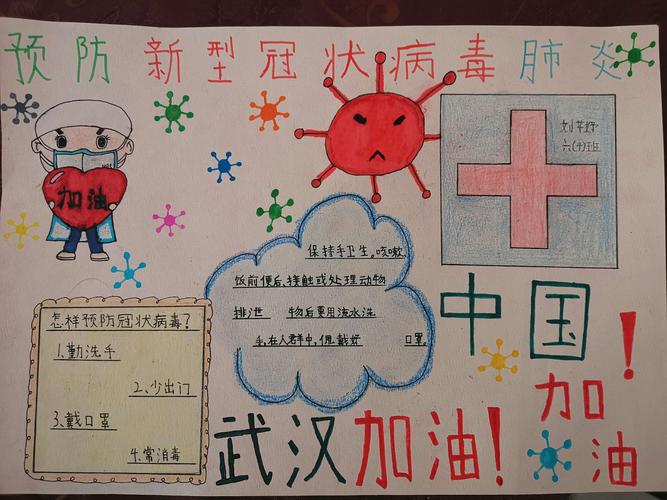 预防新型冠状病毒肺炎
加油
六(4)班
保持手卫生。咳嗽、
饭前便后、接触或处理动物
排泄 物后要用流水洗
手。在人群中,佩戴好 口罩。
怎样预防冠状病毒?
1、勤洗手
2、少出门
3、戴口罩
4、常消毒
中国!
加油
武汉加油!